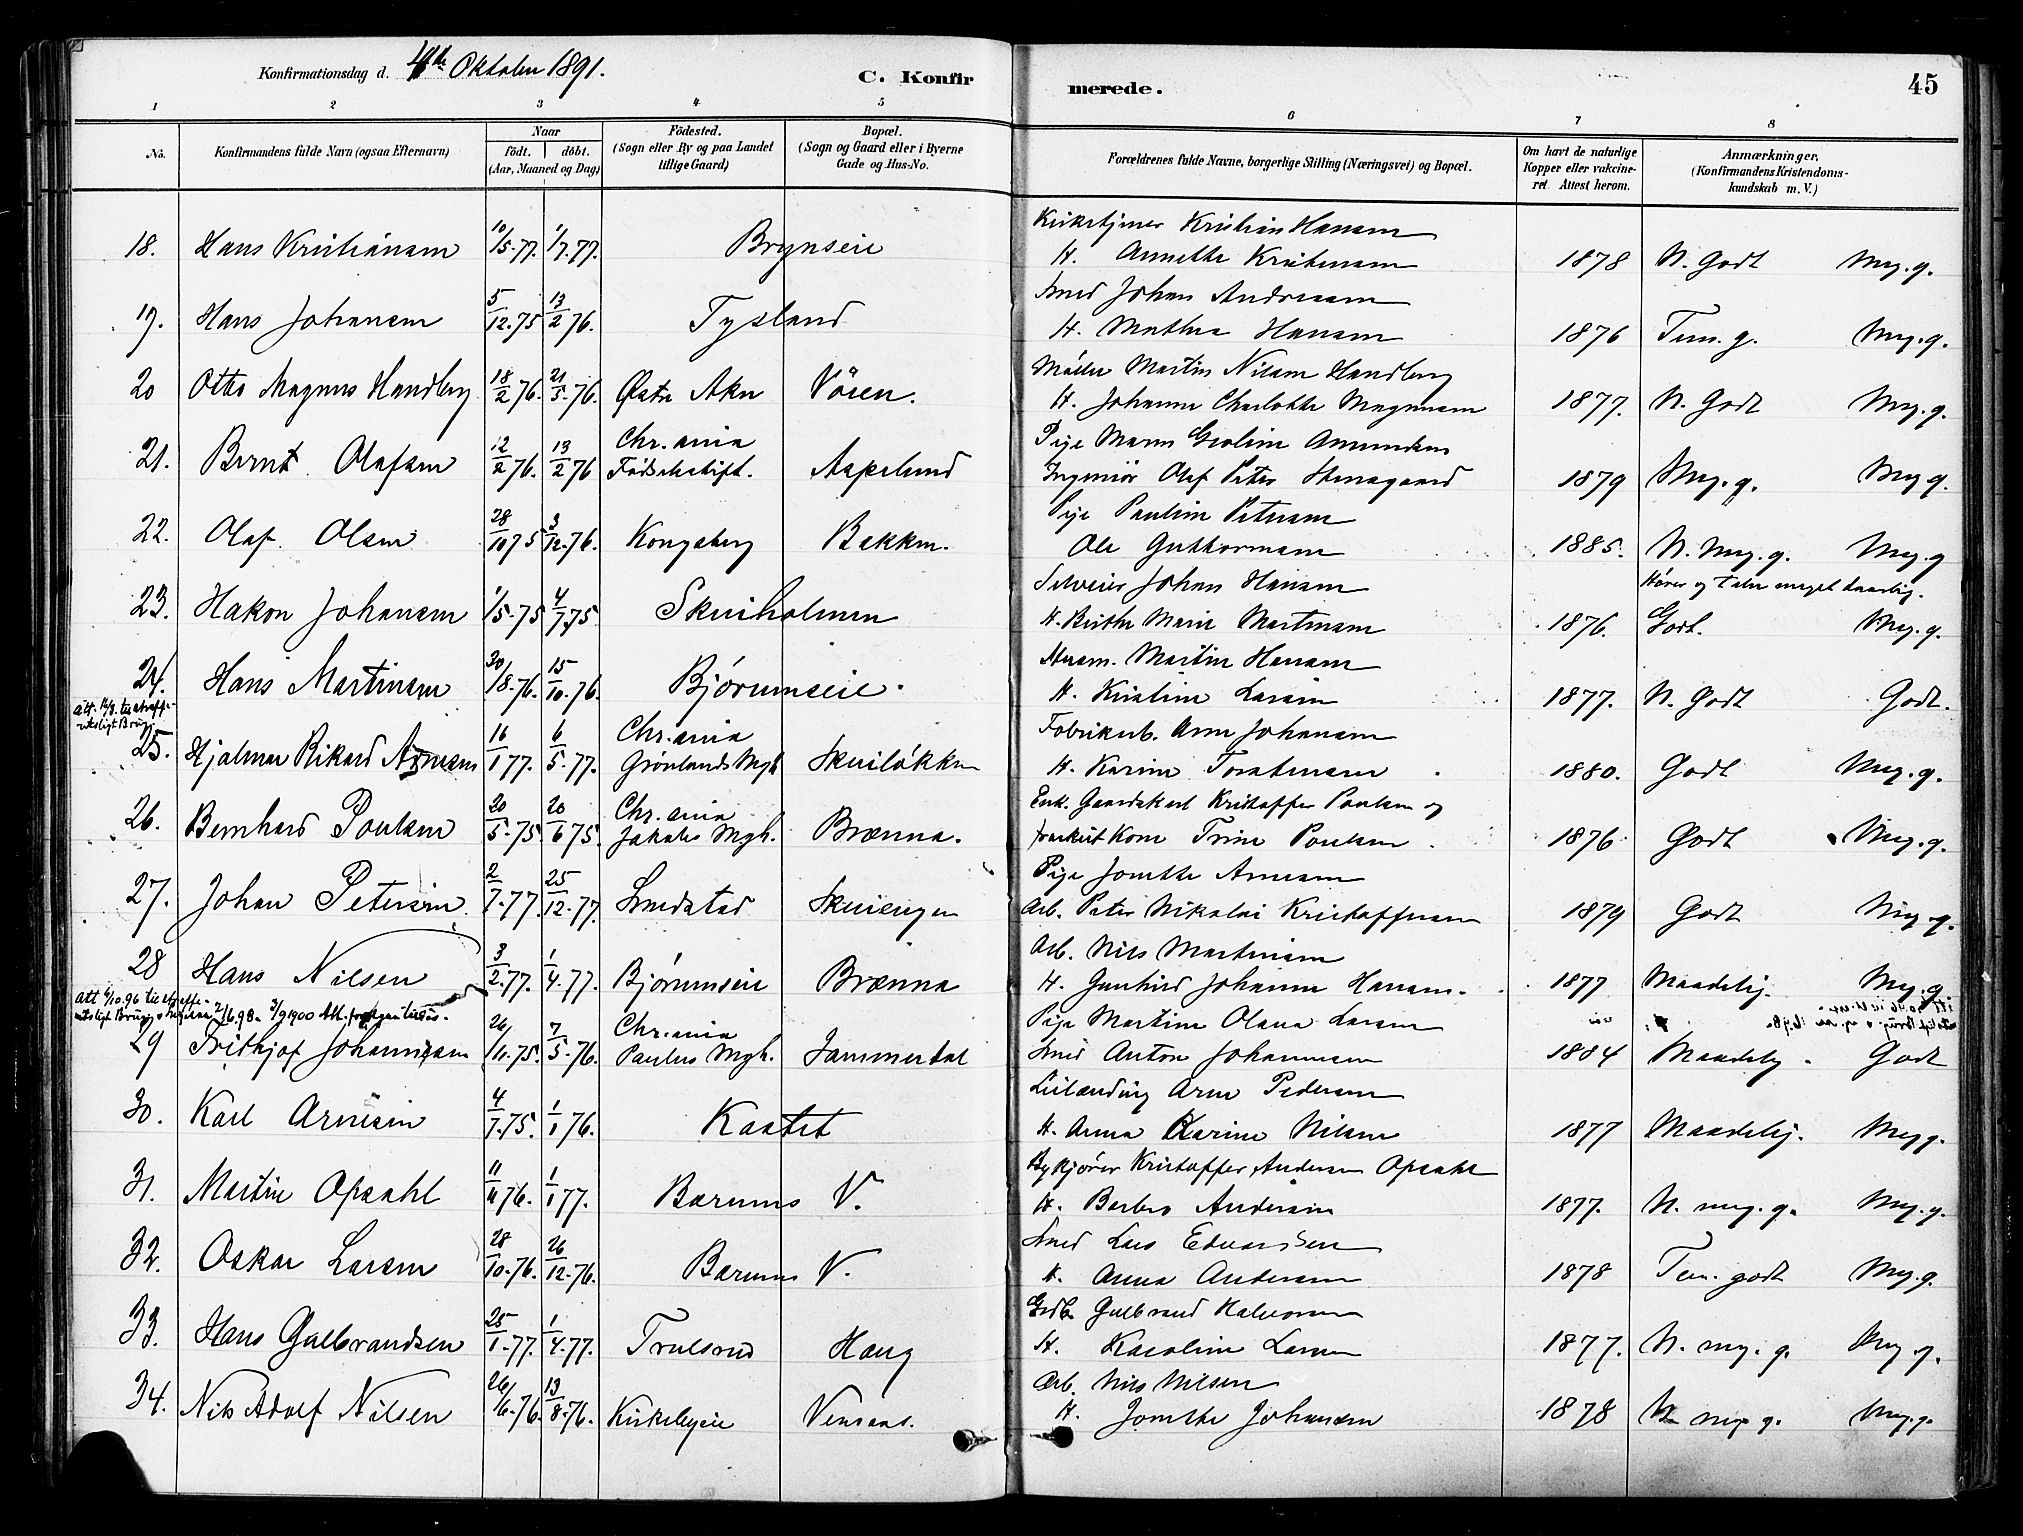 Konfirmationsdag d. 4de Oktober 1891. C. Konfirmerede. 45
1 2 3 4 5 6 7 8
No. Konfirmandens fulde Navn (ogsaa Efternavn) Naar födt. döbt. (Aar, Maaned og Dag) Födested. (Sogn eller By og paa Landet tillige Gaard) Bopæl. (Sogn og Gaard eller i Byerne Gade og Hus-No. Forældrenes fulde Navne, borgerlige Stilling (Næringsvei) og Bopæl. Om havt de naturlige Kopper eller vakcineret. Attest herom. Anmærkninger. (Konfirmandens Kristendomskundskab m. V.)
Kirketjener Kristian Hansen
18. Hans Kristiansen 10/5-77. 1/7.77. Brynseie H. Annethe Kristensen 1878 N. Godt Meg. g.
Smed Johan Andresen
19. Hans Johansen 5/12-75 13/2 76. Tysland H. Mathea Hansen 1876 Tem. g. Meg. g.
Møller Martin Nilsen Handberg
20 Otto Magnus Handberg 18/2 76. 21/5-76. Østre Aker Vöien. H. Johanne Charlotte Magnusen 1877. N. Godt Meg. g.
Pige Maren Amundsen
21. Bernt Olafsen 12/2 76. 13/2 76 Chr.ania Fødselsstift. Aspelund Ingeniör Olaf Peter Stensgaard 1879 Meg. g. Meg g.
Pige Pauline Petersen
22. Olaf Olsen 28/10 75 3/12-76. Kongsberg Bakken. Ole Guttormsen 1885. N. meg. g. Meg. g
Selveier Johan Hansen Hører og taler meget daarlig.
23. Hakon Johansen 1/5-75 4/7.75 Skuiholmen H. Birthe Marie Martinsen 1876. Godt. Meg. g.
Martin Hansen
24. Hans Martinsen 30/8-76. 15/10-76. Bjørumseie. H. Kristine Larsen 1877. N. Godt Godt.
Fabrikarb. Arne Johansen
25. Hjalmar Rikard Arnesen 16/1 77. 6/5-77. Chr.ania Grønlands Mgh Skuiløkken H. Karine Torstensen 1880. Godt Meg. g.
Enk. Gaardskarl Kristoffer Poulsen og
26. Bernhard Poulsen 20/5-75. 20/6 75. Chr.ania Jakobs Mgh. Brænna. fraskilt Kone Trine Poulsen 1876 Godt Meg. g.
Pige Jonette Arnesen
27. Johan Petersen 2/7-77. 25/12-77. Smedstad Skuiengen Arb. Peter Nikolai Kristoffersen 1879 Godt Meg. g.
Arb. Nils Martinsen
28 Hans Nilsen 3/2-77. 1/4-77. Bjørumseie Brænna H. Gunhild Johanne Hansen. 1877 Maadelig. Meg. g
Pige Martine Olava Larsen
29 Frithjof Johannesen 26/11-75. 7/5-76. Chr.ania Paulus Mgh. Jammerdal Smed Anton Johannesen 1884 Maadelig. Godt
Leilænding Arne Pedersen
30. Karl Arnesen 4/7.75. 1/1 76. Kastet H. Anna Karine Nilsen 1877 Maadelig. Meg g.
Bykjører Kristoffer Andersen Opsahl
31. Martin Opsahl 11/11 76. 1/1 77. Bærums V. H. Barbro Andersen 1877. N. meg. g. Meg. g.
Smed Lars Edvardsen
32. Oskar Larsen 28/10-76. 26/12-76. Bærums V. H. Anna Andersen 1878 Tem. godt Meg. g.
Gulbrand Halvorsen
33. Hans Gulbrandsen 25/1-77. 1/4-77. Trulsrud Haug H. Karoline Larsen 1877. N. meg. g. Meg. g.
Arb. Nils Nilsen
34. Nils Adolf Nilsen 26/6-76. 13/8-76. Kirkebyeie H. Jonette Johansen 1878 N. meg. g. Meg. g.